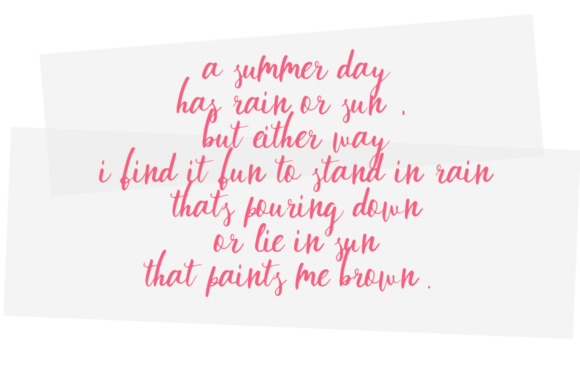 a summer day
has rain or sun .
but either way
i find it fun to stand in rain
thats pouring down
or lie in sun
that paints me brown .